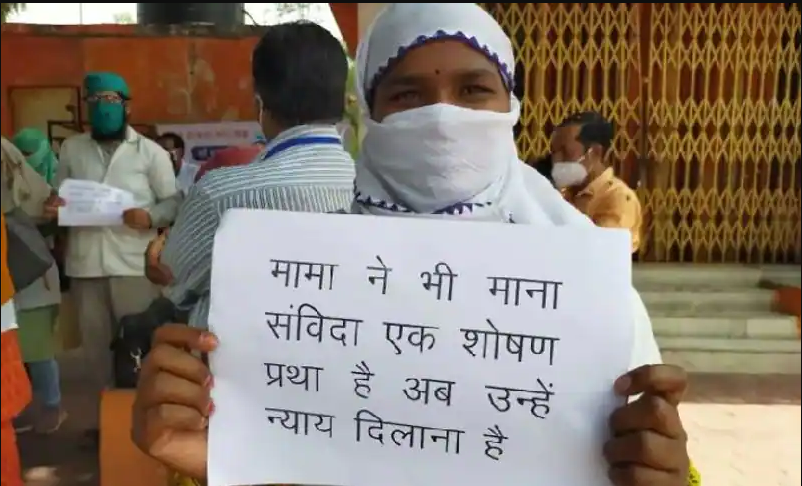 मामा ने भी माना
संविदा एक शोषण
प्रथा है अब उन्हें
न्याय दिलाना है